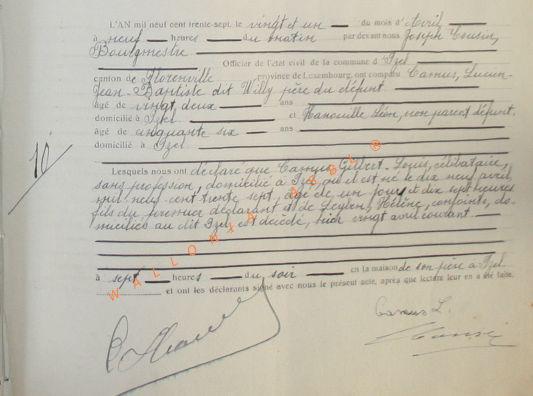 L'AN mil neuf cent trente-sept, le vingt et un du mois d'Avril
à neuf heures du matin par devant nous Joseph Cousin,
Bourgmestre
Officier de l'état civil de la commune d'Izel
canton de Florenville province de Luxembourg, ont comparu Camus, Lucien-
Jean-Baptiste dit Willy père du défunt
âgé de vingt deux ans
domicilié à Izel et Hanouille Léon, non parent défunt.
âgé de cinquante six ans
domicilié à Izel
10
Lesquels nous ont déclaré que Camus Gilbert-Louis, célibataire,
sans profession, domicilié à Izel, où il est né le dix neuf avril
mil neuf cent trente sept, âgé de un jour et dix sept heures
fils du premier déclarant et de Hélène, conjoints, do-
miciliés au dit Izel est décédé, hier vingt avril courant
à sept heures du soir en la maison de son père à Izel
et ont les déclarants signé avec nous le présent acte, après que lecture leur en a été faite.
Camus L.
WALLONIA ASBL ®